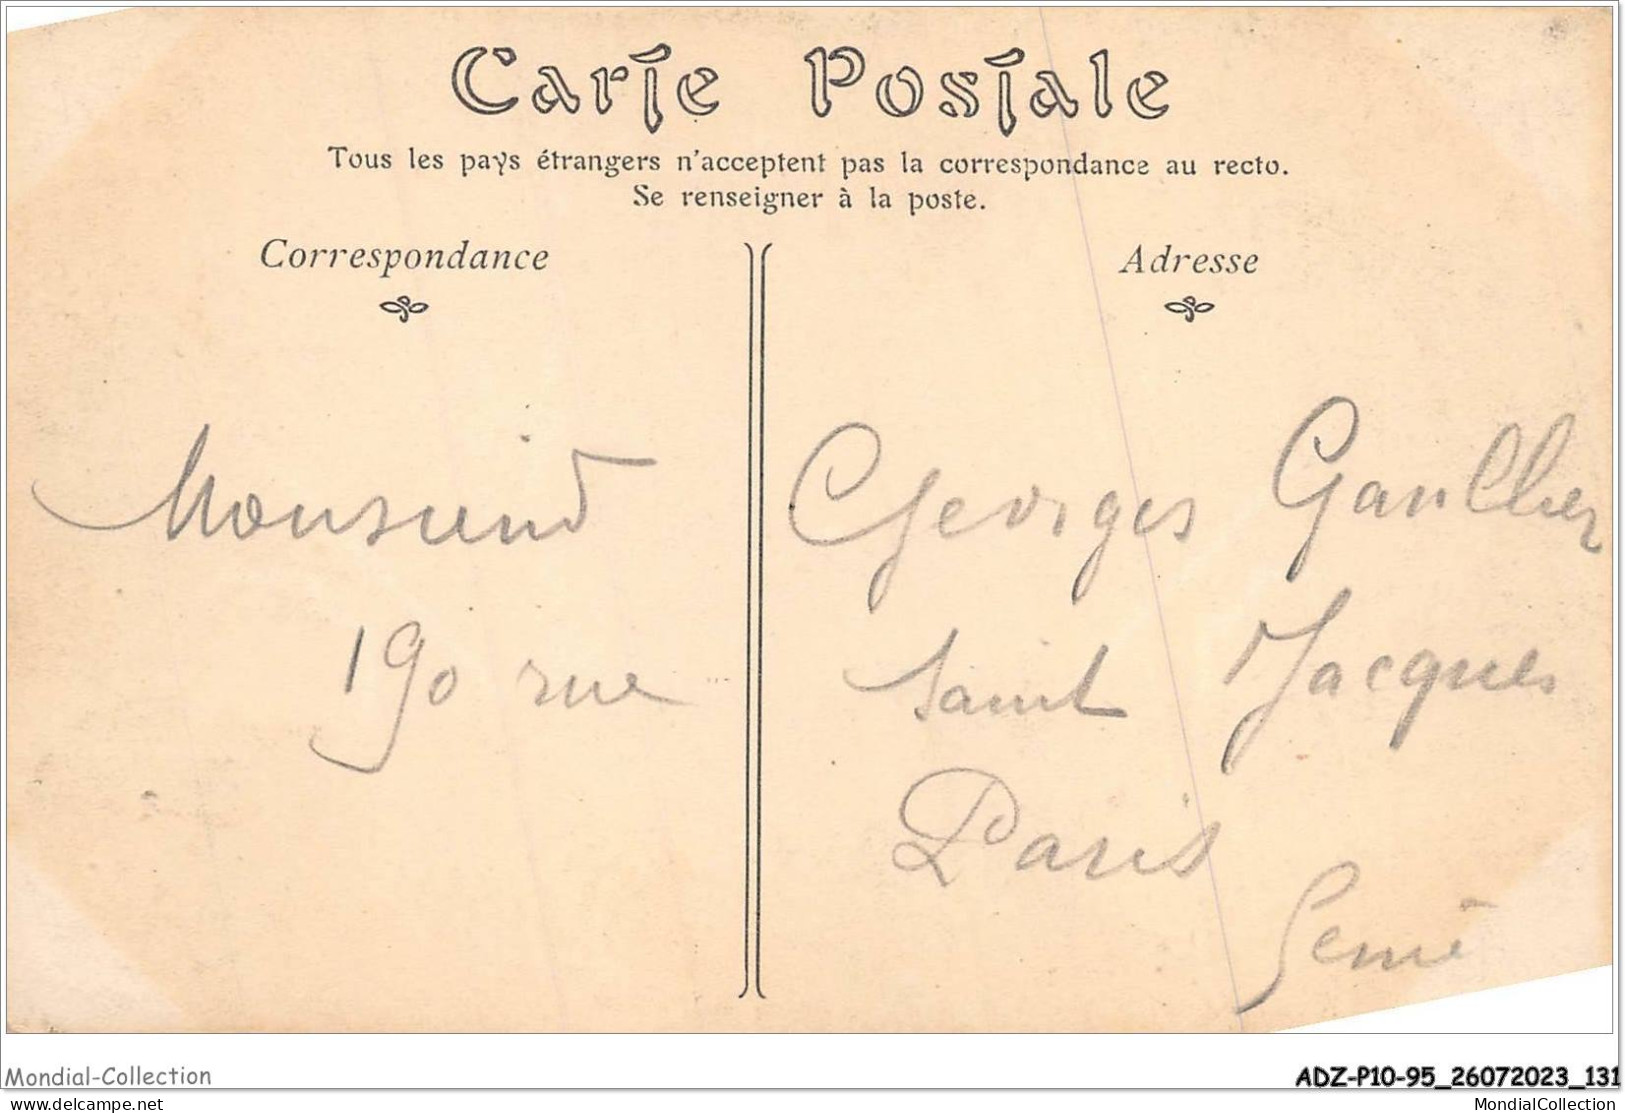 Carte Postale
Tous les pays étrangers n'acceptent pas la correspondance au recto.
Se renseigner à la poste.
Correspondance
Adresse
Monsieur Georges Gaulthier
190 rue Saint Jacques
Paris
Seine
Mondial-Collection
ADZ-P10-95_26072023_131
www.delcampe.net
MondialCollection